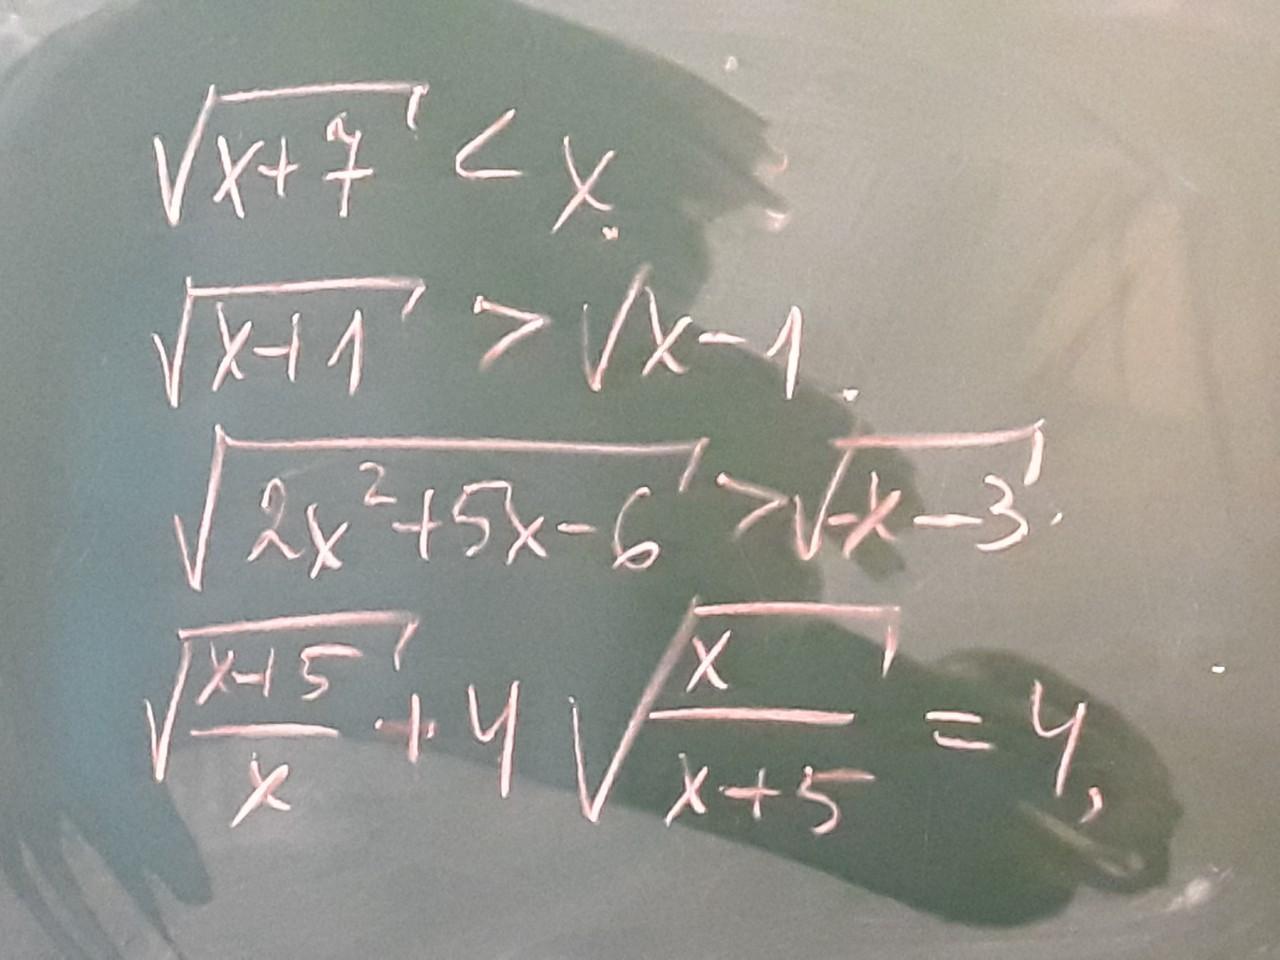 √(x+7) < x.
√(x+1) > √x-1.
√(2x²+5x-6) > √(-x-3).
√((x+5)/x) + 4√(x/(x+5)) = 4,